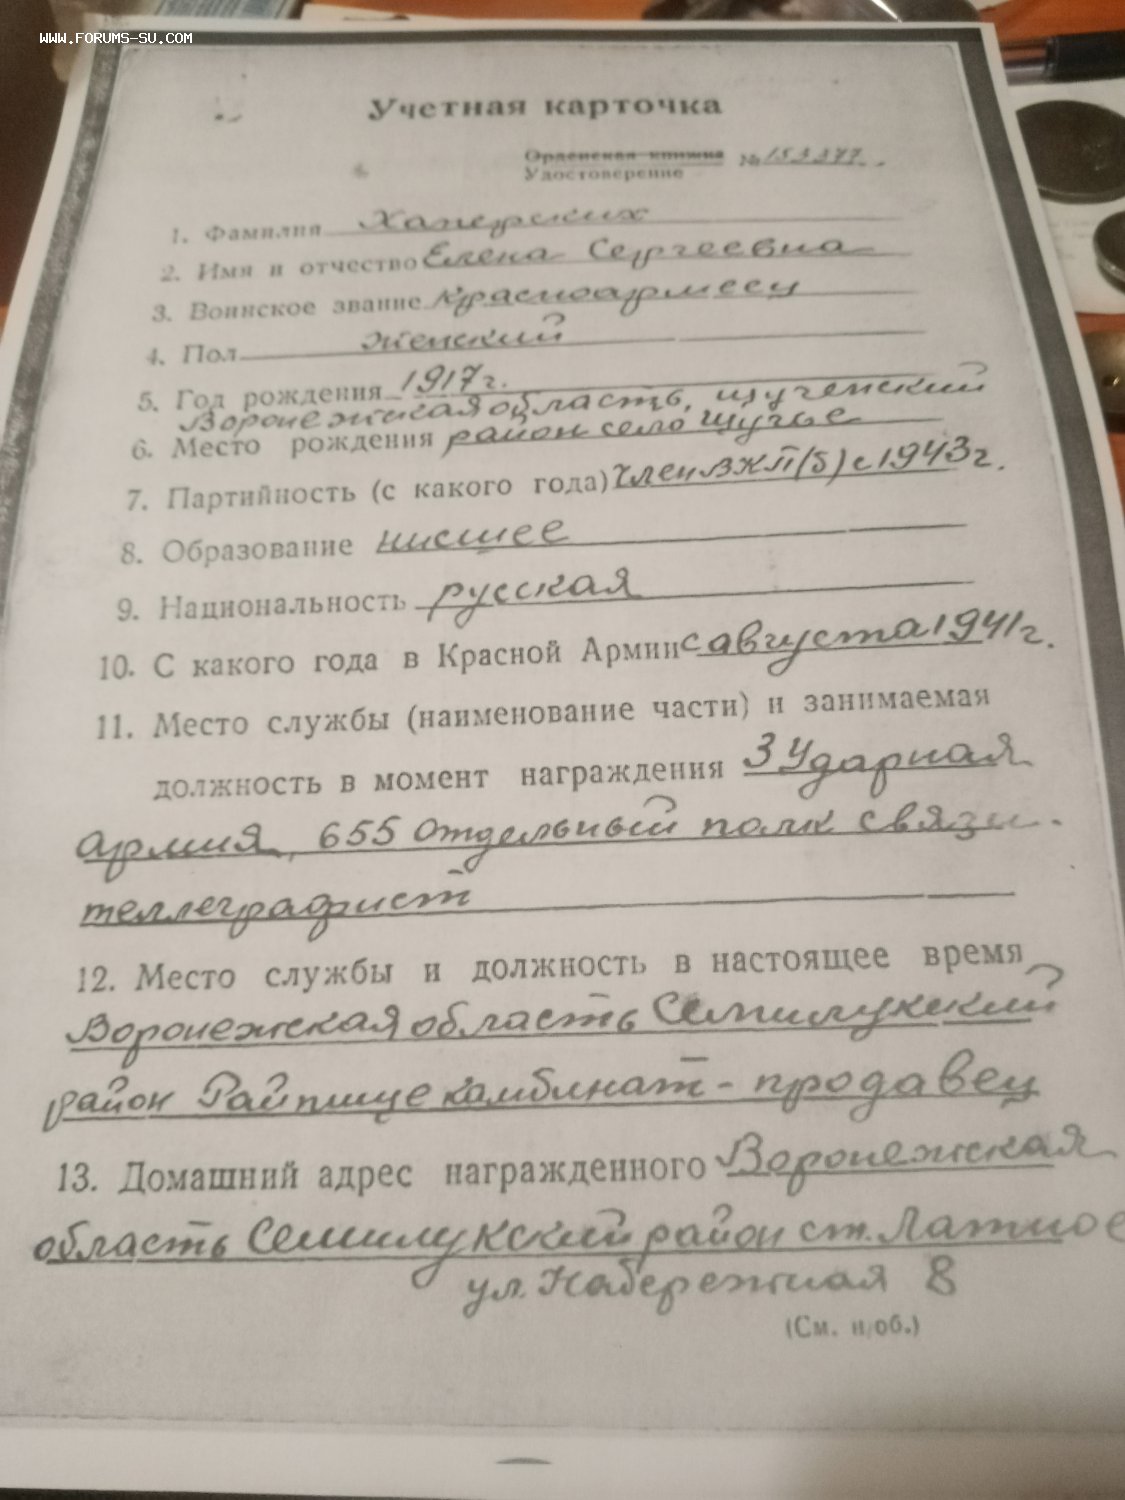 WWW.FORUMS-SU.COM
Учетная карточка
Орденская книжка № 153377.
Удостоверение
1. Фамилия Хаперских
2. Имя и отчество Елена Сергеевна
3. Воинское звание Красноармеец
4. Пол женский
5. Год рождения 1917 г.
Воронежская область, щученский
6. Место рождения район село Щучье
7. Партийность (с какого года) Член ВКП(б) с 1943 г.
8. Образование нисшее
9. Национальность русская
10. С какого года в Красной Армии с августа 1941 г.
11. Место службы (наименование части) и занимаемая
должность в момент награждения 3 Ударная
Армия, 655 Отдельный полк связи.
теллеграфист
12. Место службы и должность в настоящее время
Воронежская область Семилукский
район Райпищекамбинат - продавец
13. Домашний адрес награжденного Воронежская
область Семилукский район ст. Латное
ул. Набережная 8
(См. н/об.)